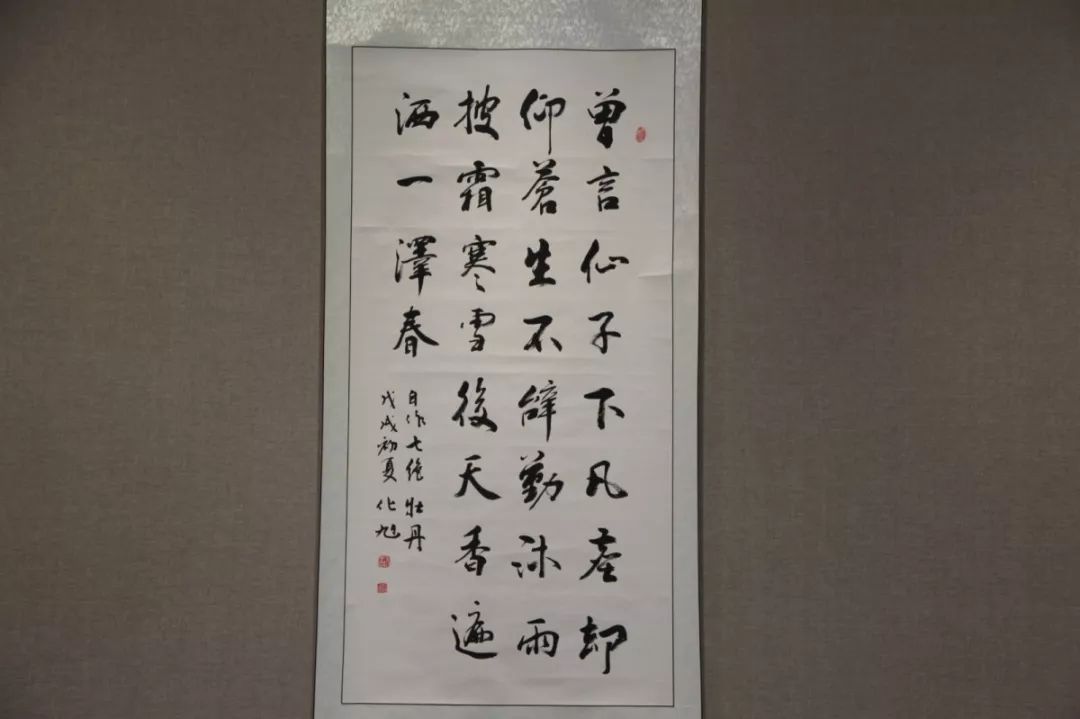 曾言仙子下凡塵却
仰蒼生不辞勤沐雨
披霜寒雪後天香遍
洒一澤春
自作七绝 牡丹
戊戌初夏 化旭